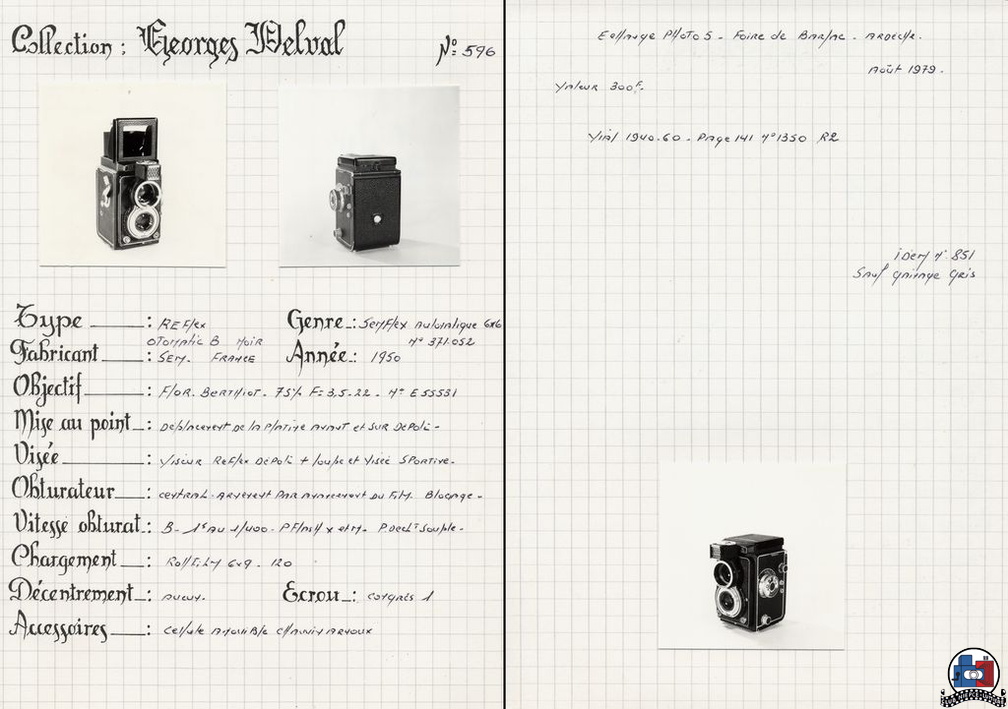 Collection : Georges Delval N° 596
Type : REFlex
Genre : SemFlex Automatique 6x6
OTOMATIC B NOIR
N° 371.052
Fabricant : SEM. FRANCE
Année : 1950
Objectif : FLOR. BERTHIOT. 75% F=3,5-22 - N° E 55531
Mise au point : Deplacement De la Platine avant et sur Depoli -
Visée : Viseur Reflex Depoli + loupe et visée SPortive.
Obturateur : central - armement Par avancement du Film. Blocage -
Vitesse obturat : B - 1s au 1/400 - P.Flash x et M - P.Decl' Souple -
Chargement : RollFilm 6x9 - 120
Décentrement : aucun.
Ecrou : congrès 1
Accessoires : cellule amovible
Echange PHOTOS - Foire de - ARDECHE.
Août 1979.
Valeur 300F.
Vial 1940-60 - Page 141 N° 1350 R2
iDem N° 851
Sauf gainage gris